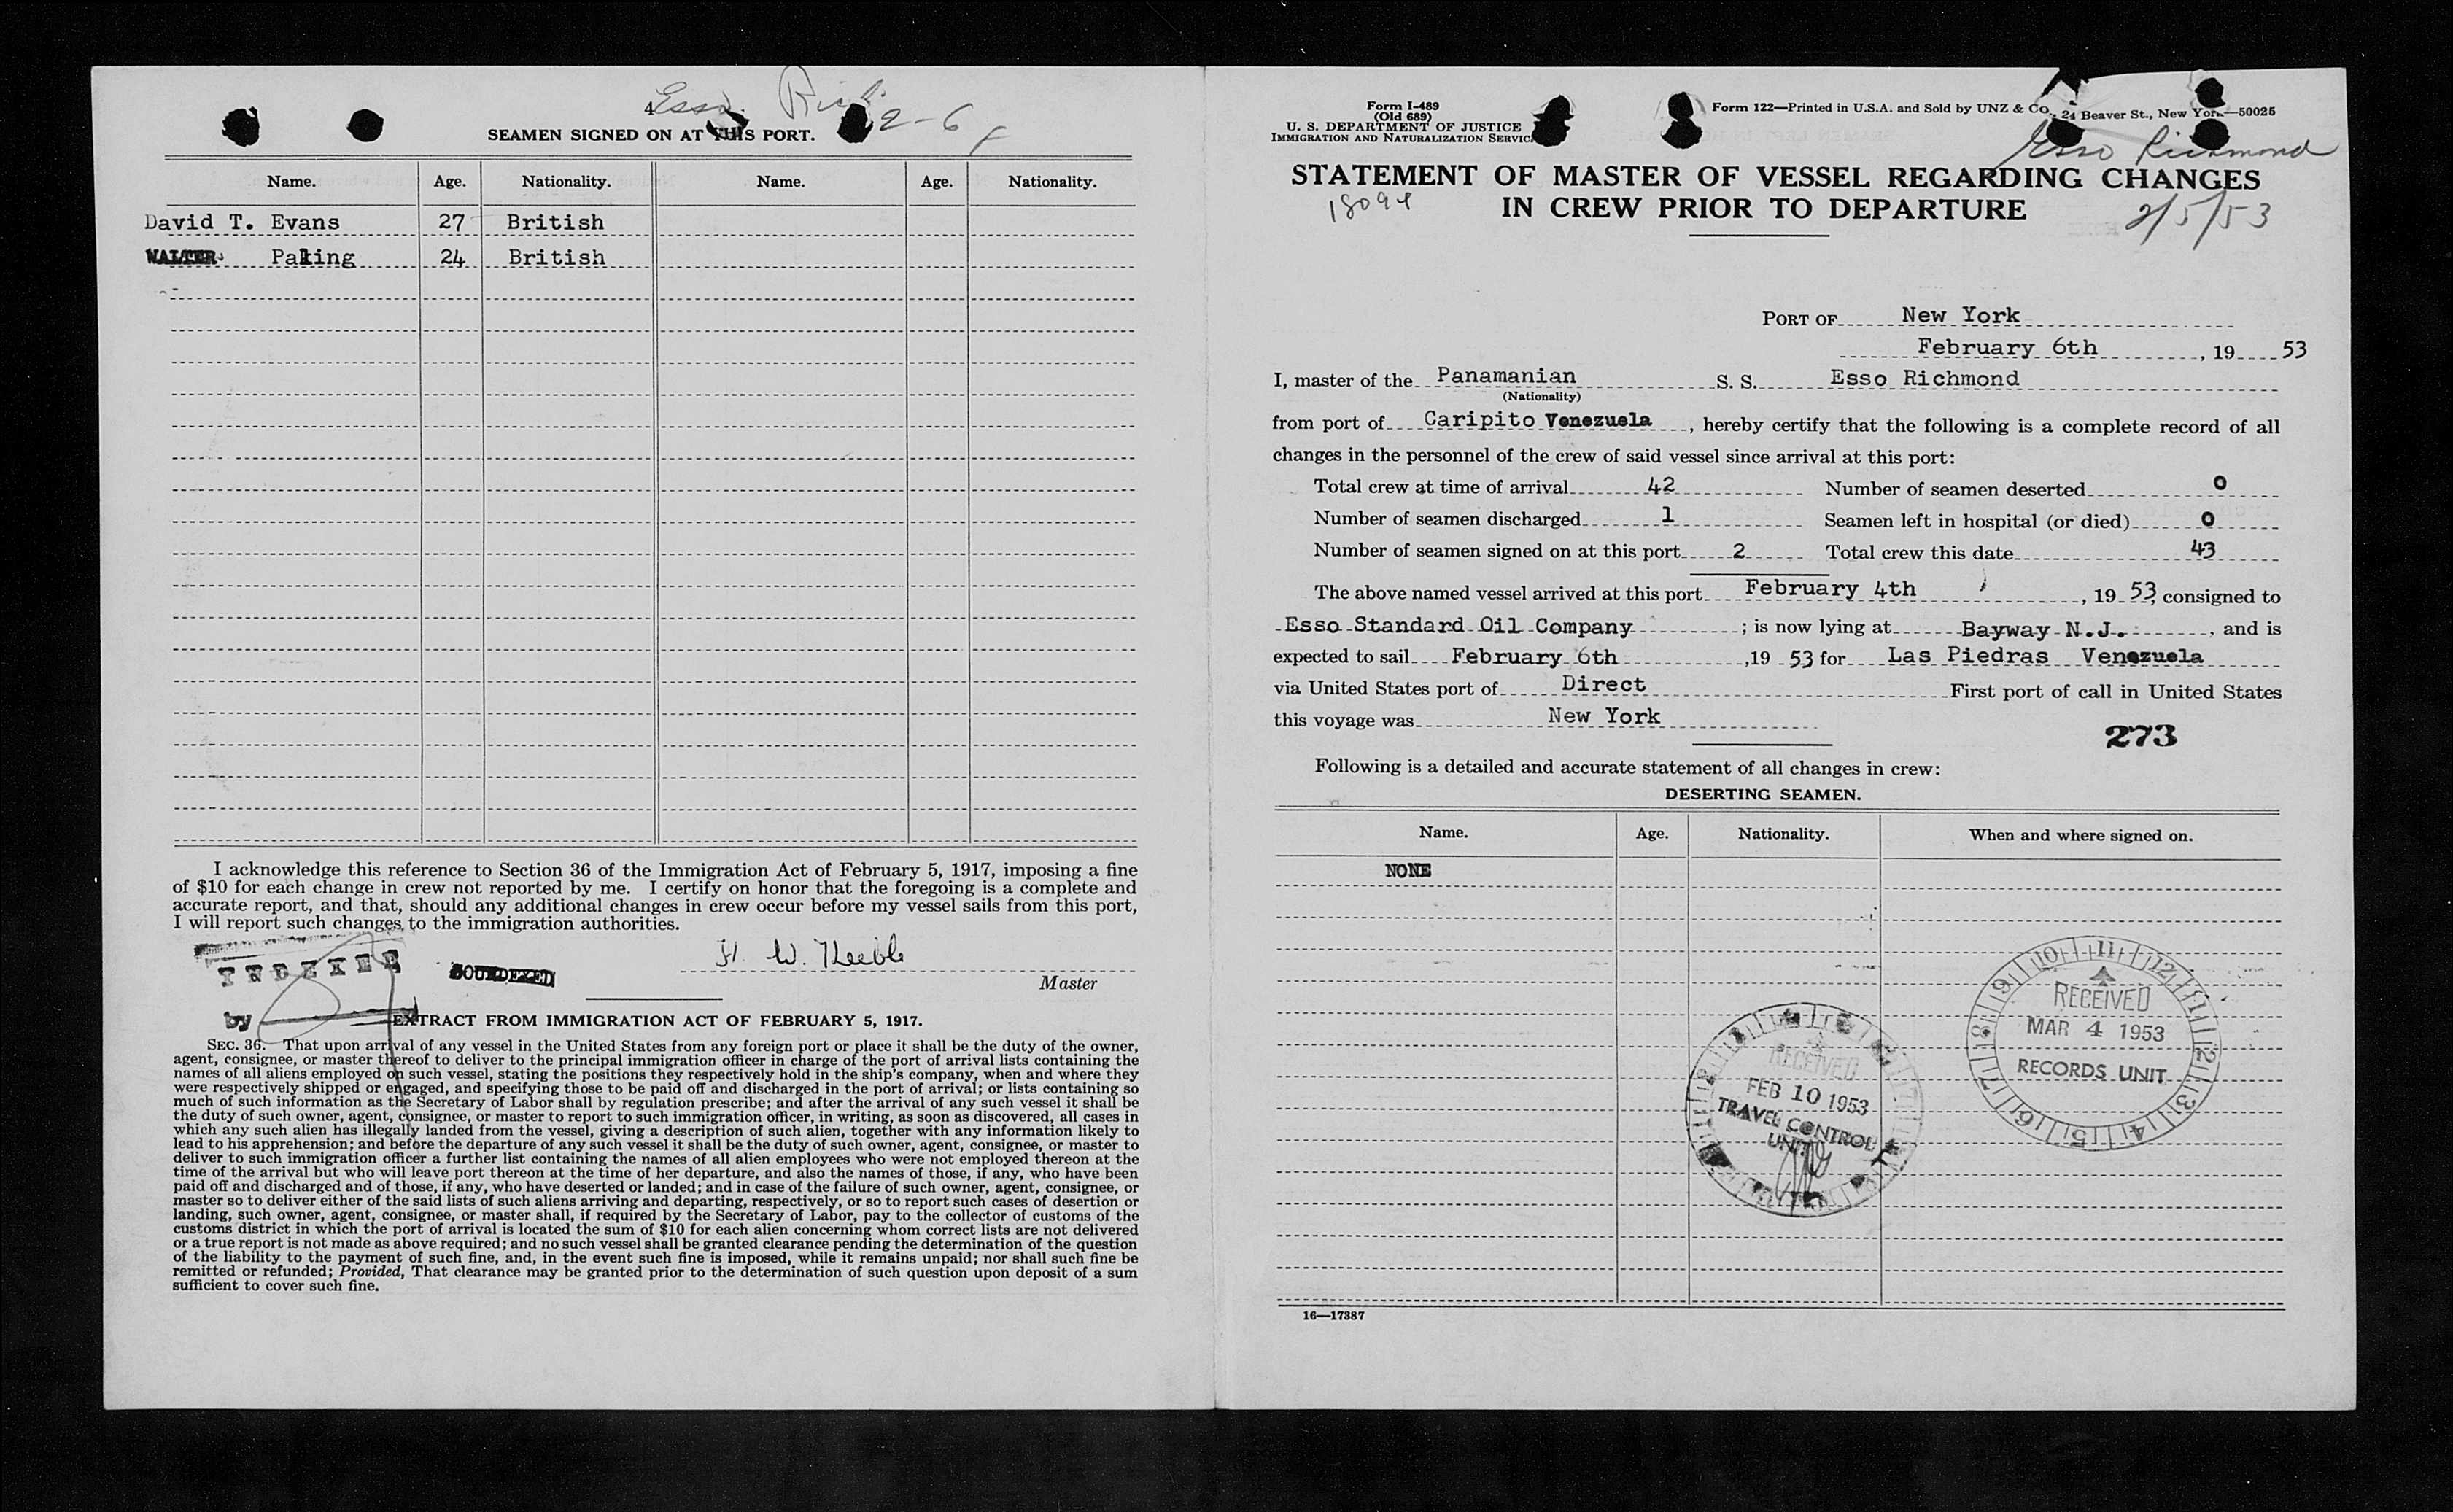 4
Esso
2-6
SEAMEN SIGNED ON AT THIS PORT.
Name. Age. Nationality. Name. Age. Nationality.
David T. Evans 27 British
WALTER Paling 24 British
I acknowledge this reference to Section 36 of the Immigration Act of February 5, 1917, imposing a fine
of $10 for each change in crew not reported by me. I certify on honor that the foregoing is a complete and
accurate report, and that, should any additional changes in crew occur before my vessel sails from this port,
I will report such changes to the immigration authorities.
INDEXED
SOUNDEXED
H. W. Keeble
Master
by
EXTRACT FROM IMMIGRATION ACT OF FEBRUARY 5, 1917.
SEC. 36. That upon arrival of any vessel in the United States from any foreign port or place it shall be the duty of the owner,
agent, consignee, or master thereof to deliver to the principal immigration officer in charge of the port of arrival lists containing the
names of all aliens employed on such vessel, stating the positions they respectively hold in the ship's company, when and where they
were respectively shipped or engaged, and specifying those to be paid off and discharged in the port of arrival; or lists containing so
much of such information as the Secretary of Labor shall by regulation prescribe; and after the arrival of any such vessel it shall be
the duty of such owner, agent, consignee, or master to report to such immigration officer, in writing, as soon as discovered, all cases in
which any such alien has illegally landed from the vessel, giving a description of such alien, together with any information likely to
lead to his apprehension; and before the departure of any such vessel it shall be the duty of such owner, agent, consignee, or master to
deliver to such immigration officer a further list containing the names of all alien employees who were not employed thereon at the
time of the arrival but who will leave port thereon at the time of her departure, and also the names of those, if any, who have been
paid off and discharged and of those, if any, who have deserted or landed; and in case of the failure of such owner, agent, consignee, or
master so to deliver either of the said lists of such aliens arriving and departing, respectively, or so to report such cases of desertion or
landing, such owner, agent, consignee, or master shall, if required by the Secretary of Labor, pay to the collector of customs of the
customs district in which the port of arrival is located the sum of $10 for each alien concerning whom correct lists are not delivered
or a true report is not made as above required; and no such vessel shall be granted clearance pending the determination of the question
of the liability to the payment of such fine, and, in the event such fine is imposed, while it remains unpaid; nor shall such fine be
remitted or refunded; Provided, That clearance may be granted prior to the determination of such question upon deposit of a sum
sufficient to cover such fine.
Form I-489
(Old 689)
U. S. DEPARTMENT OF JUSTICE
IMMIGRATION AND NATURALIZATION SERVICE
Form 122—Printed in U.S.A. and Sold by UNZ & Co., 24 Beaver St., New York—50025
Esso Richmond
STATEMENT OF MASTER OF VESSEL REGARDING CHANGES
IN CREW PRIOR TO DEPARTURE
18094
2/5/53
PORT OF New York
February 6th, 19 53
I, master of the Panamanian S. S. Esso Richmond
(Nationality)
from port of Caripito Venezuela, hereby certify that the following is a complete record of all
changes in the personnel of the crew of said vessel since arrival at this port:
Total crew at time of arrival 42 Number of seamen deserted 0
Number of seamen discharged 1 Seamen left in hospital (or died) 0
Number of seamen signed on at this port 2 Total crew this date 43
The above named vessel arrived at this port February 4th, 19 53, consigned to
Esso Standard Oil Company; is now lying at Bayway N.J., and is
expected to sail February 6th, 19 53 for Las Piedras Venezuela
via United States port of Direct First port of call in United States
this voyage was New York
273
Following is a detailed and accurate statement of all changes in crew:
DESERTING SEAMEN.
Name. Age. Nationality. When and where signed on.
NONE
RECEIVED
MAR 4 1953
RECORDS UNIT
RECEIVED
FEB 10 1953
TRAVEL CONTROL
UNIT
16—17387